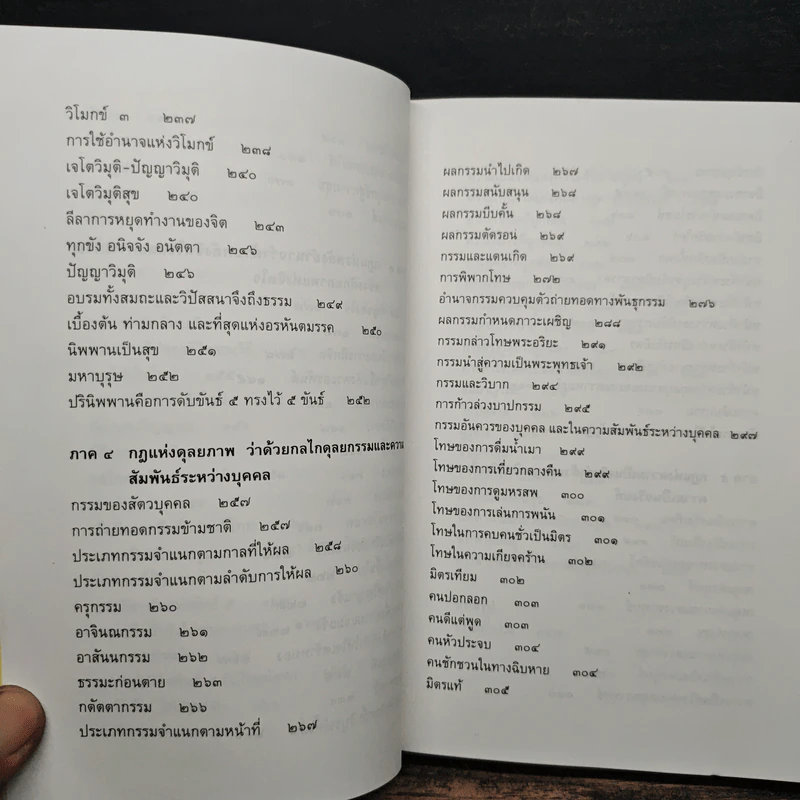 วิโมกข์ ๓ ๒๓๗
การใช้อำนาจแห่งวิโมกข์ ๒๓๘
เจโตวิมุติ-ปัญญาวิมุติ ๒๔๐
เจโตวิมุติสุข ๒๔๐
ลีลาการหยุดทำงานของจิต ๒๔๓
ทุกขัง อนิจจัง อนัตตา ๒๔๖
ปัญญาวิมุติ ๒๔๖
อบรมทั้งสมถะและวิปัสสนาจึงถึงธรรม ๒๔๙
เบื้องต้น ท่ามกลาง และที่สุดแห่งอรหันตมรรค ๒๕๐
นิพพานเป็นสุข ๒๕๑
มหาบุรุษ ๒๕๒
ปรินิพพานคือการดับขันธ์ ๕ ทรงไว้ ๕ ขันธ์ ๒๕๒
ภาค ๔ กฎแห่งดุลยภาพ ว่าด้วยกลไกดุลยกรรมและความ
สัมพันธ์ระหว่างบุคคล
กรรมของสัตวบุคคล ๒๕๗
การถ่ายทอดกรรมข้ามชาติ ๒๕๗
ประเภทกรรมจำแนกตามกาลที่ให้ผล ๒๕๘
ประเภทกรรมจำแนกตามลำดับการให้ผล ๒๖๐
ครุกรรม ๒๖๐
อาจินณกรรม ๒๖๑
อาสันนกรรม ๒๖๒
ธรรมะก่อนตาย ๒๖๓
กตัตตากรรม ๒๖๖
ประเภทกรรมจำแนกตามหน้าที่ ๒๖๗
ผลกรรมนำไปเกิด ๒๖๗
ผลกรรมสนับสนุน ๒๖๘
ผลกรรมบีบคั้น ๒๖๘
ผลกรรมตัดรอน ๒๖๙
กรรมและแดนเกิด ๒๖๙
การพิพากโทษ ๒๗๒
อำนาจกรรมควบคุมตัวถ่ายทอดทางพันธุกรรม ๒๗๖
ผลกรรมกำหนดภาวะเผชิญ ๒๘๘
กรรมกล่าวโทษพระอริยะ ๒๙๑
กรรมนำสู่ความเป็นพระพุทธเจ้า ๒๙๒
กรรมและวิบาก ๒๙๔
การก้าวล่วงบาปกรรม ๒๙๕
กรรมอันควรของบุคคล และในความสัมพันธ์ระหว่างบุคคล ๒๙๗
โทษของการดื่มน้ำเมา ๒๙๙
โทษของการเที่ยวกลางคืน ๒๙๙
โทษของการดูมหรสพ ๓๐๐
โทษของการเล่นการพนัน ๓๐๑
โทษในการคบคนชั่วเป็นมิตร ๓๐๑
โทษในความเกียจคร้าน ๓๐๒
มิตรเทียม ๓๐๒
คนปอกลอก ๓๐๓
คนดีแต่พูด ๓๐๓
คนหัวประจบ ๓๐๔
คนชักชวนในทางฉิบหาย ๓๐๔
มิตรแท้ ๓๐๕